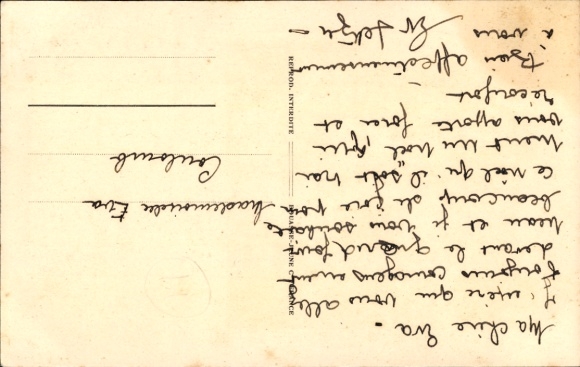 Ma chère Eva -
J'espère que vous allez
toujours courageusement
devant le grand jour
beau et je vous souhaite
beaucoup de joie pour
ce Noël qu'il soit vrai
ment un Noël, qui
vous apporte force et
réconfort -
Bien affectueusement
à vous
Mademoiselle Eva
Coulomb
REPROD. INTERDITE